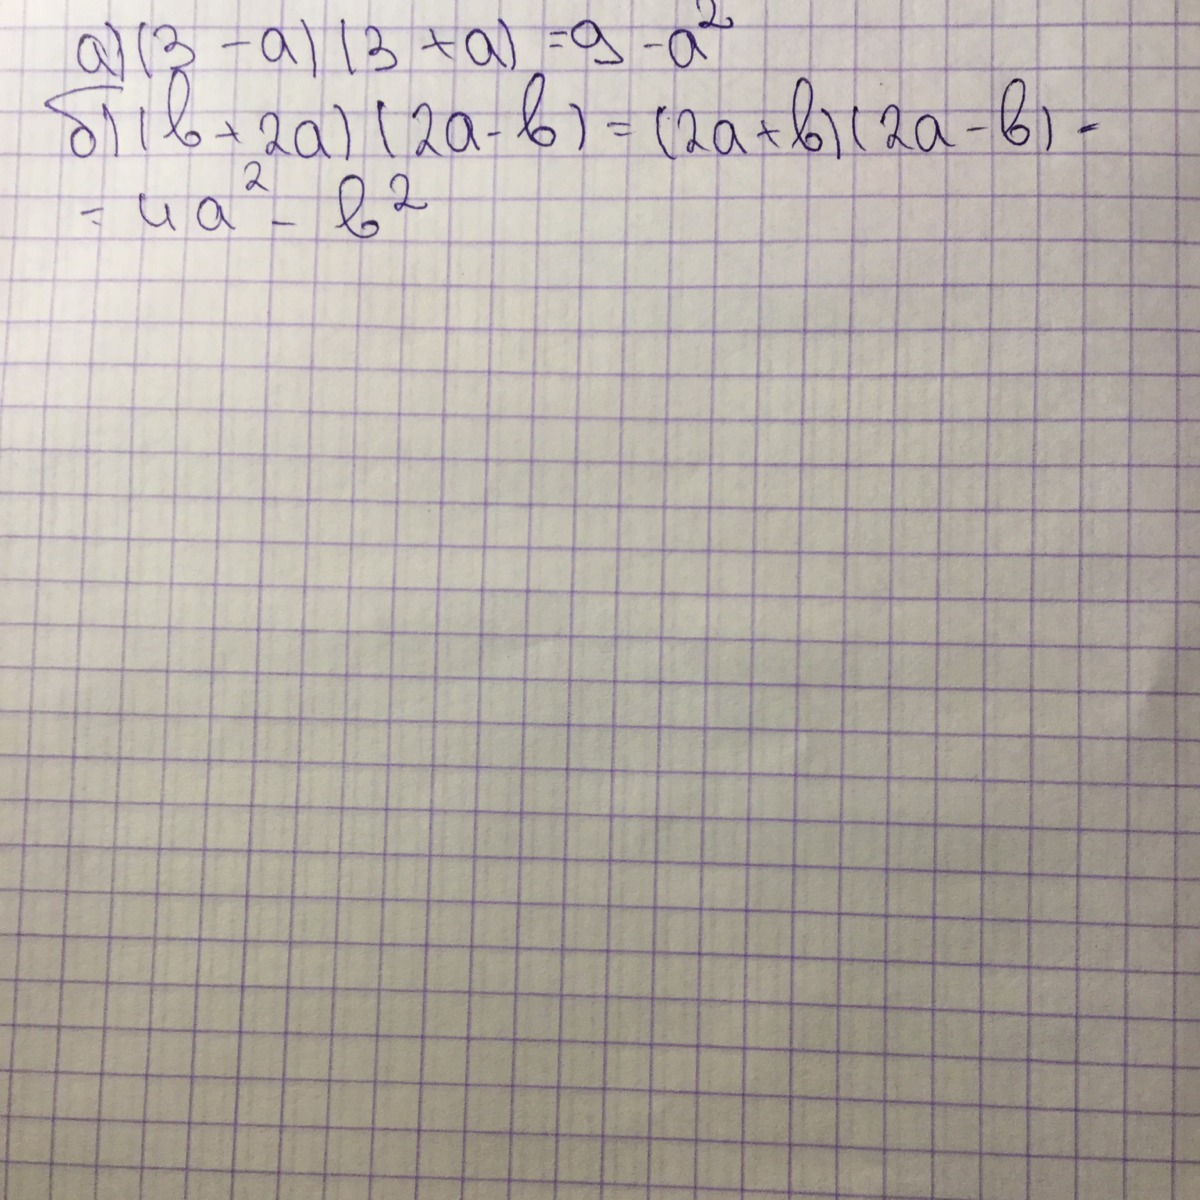 а) (3 - a) (3 + a) = 9 - a²
б) (b + 2a) (2a - b) = (2a + b) (2a - b) -
= 4a² - b²